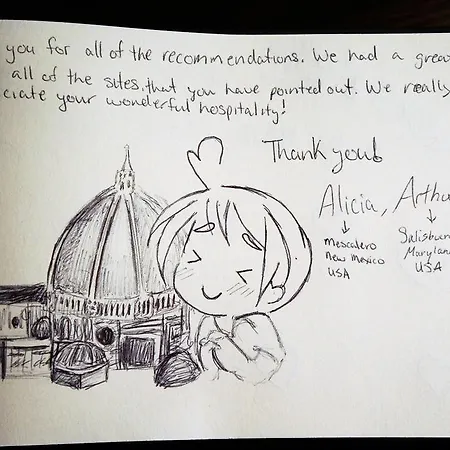 you for all of the recommendations. We had a grea
all of the sites, that you have pointed out. We really
ciate your wonderful hospitality!
Thank you!
Alicia, Arthu
↓ ↓
mescalero Salisbur
new mexico Maryland
USA USA